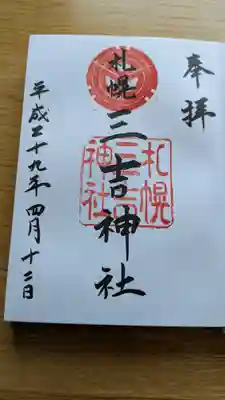 奉拝
札幌
三吉神社
札幌
三吉
神社
平成二十九年四月十二日